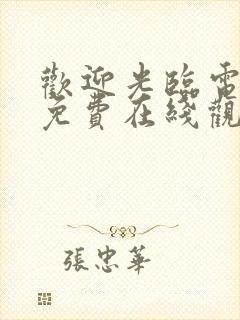 歡迎光臨電
免費在綫觀
張忠華